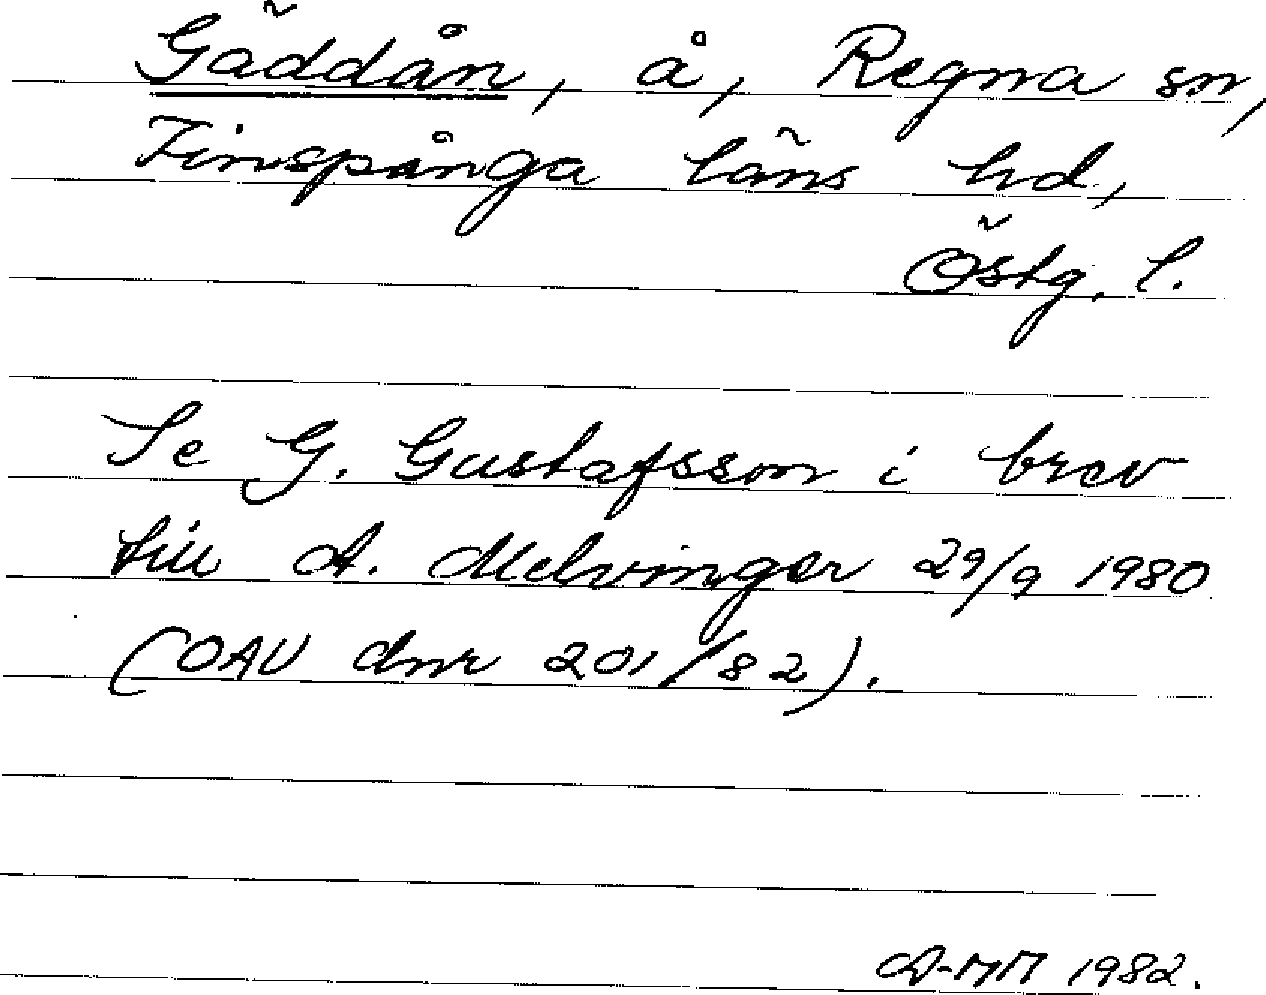 Gäddån, å, Regna sn,
Finspånga läns hd,
Östg. l.
Se G. Gustafsson i brev
till A. Melvinger 29/9 1980
(OAU dnr 201/82).
A-MM 1982.